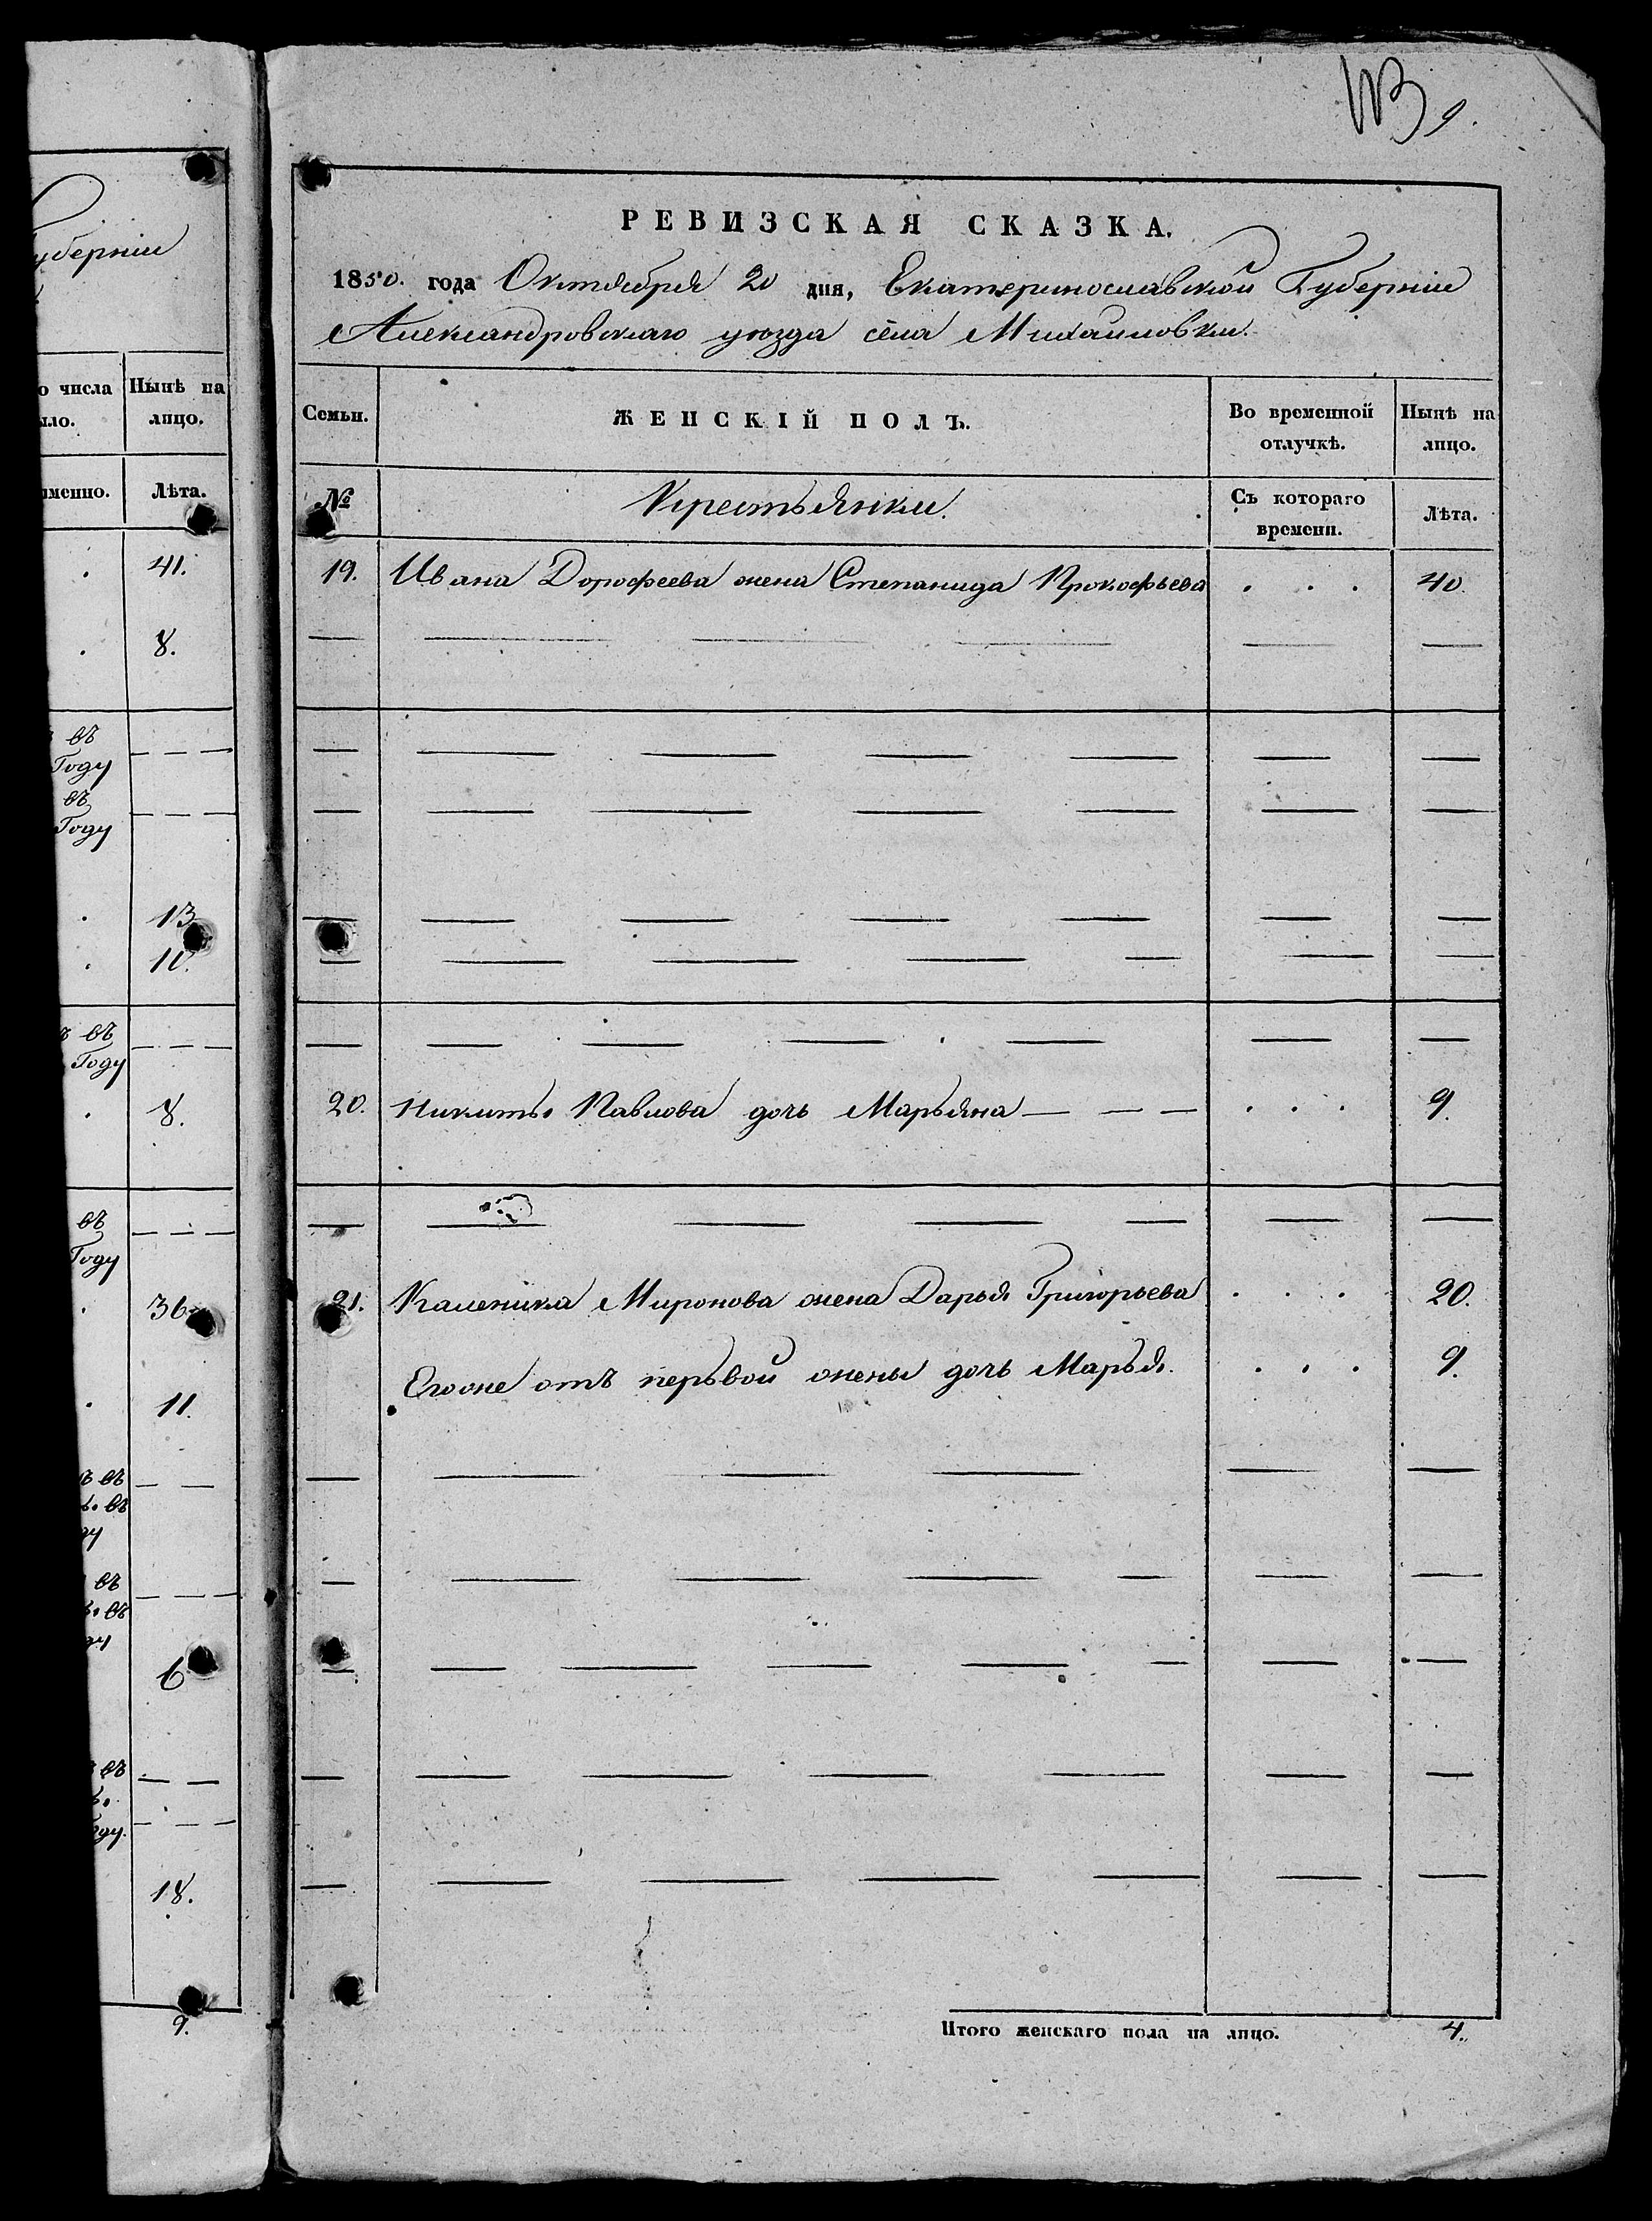 губерніи
о числа Нынѣ на
ыло. лицо.
именно. Лѣта.
41.
8.
въ
Году
въ
Году
13
10.
въ
Году
8.
въ
Году
36
11.
ъ въ
ь. въ
ду
въ
ь. въ
ду
6
въ
ь.
оду.
18.
9.
9.
РЕВИЗСКАЯ СКАЗКА.
1850. года Октября 20 дня, Екатеринославской Губерніи
Александровскаго уѣзда сѣла Михайловки.
Семьи. ЖЕНСКІЙ ПОЛЪ. Во временной отлучкѣ. Нынѣ на лицо.
№ Крестьянки. Съ котораго времени. Лѣта.
19. Ивана Дорофеева жена Степанида Прокофьева . . . 40.
20. Никиты Павлова дочь Марьяна — — — . . . 9.
21. Каленика Миронова жена Дарья Григорьева . . . 20.
Егоже отъ перьвой жены дочь Марья. . . . 9.
Итого женскаго пола на лицо. 4.